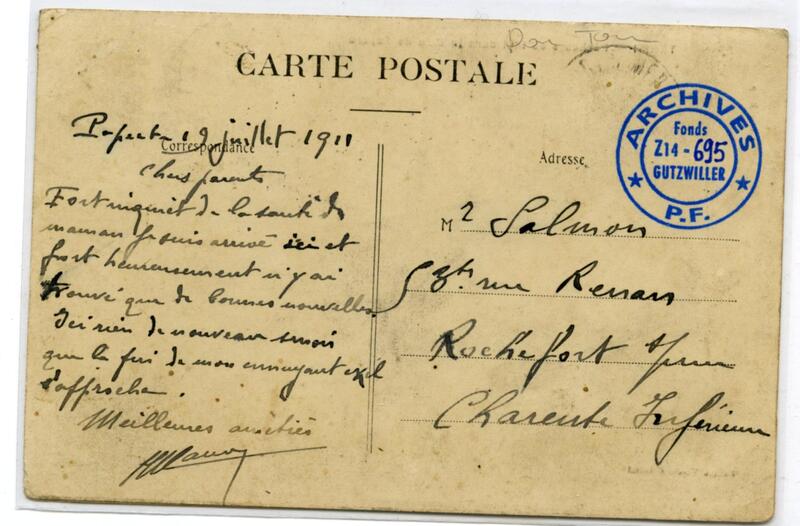 CARTE POSTALE
Papeete 19 juillet 1911
Correspondance
Chers parents
Fort inquiet de la santé de
maman je suis arrivé ici et
fort heureusement n'y ai
trouvé que de bonnes nouvelles.
Ici rien de nouveau sinon
que la fin de mon ennuyant exil
s'approche.
Meilleures amitiés
Adresse
Mr Salmon
rue Renan
Rochefort s/mer
Charente Inférieure
ARCHIVES
Fonds
Z14 - 695
GUTZWILLER
P.F.